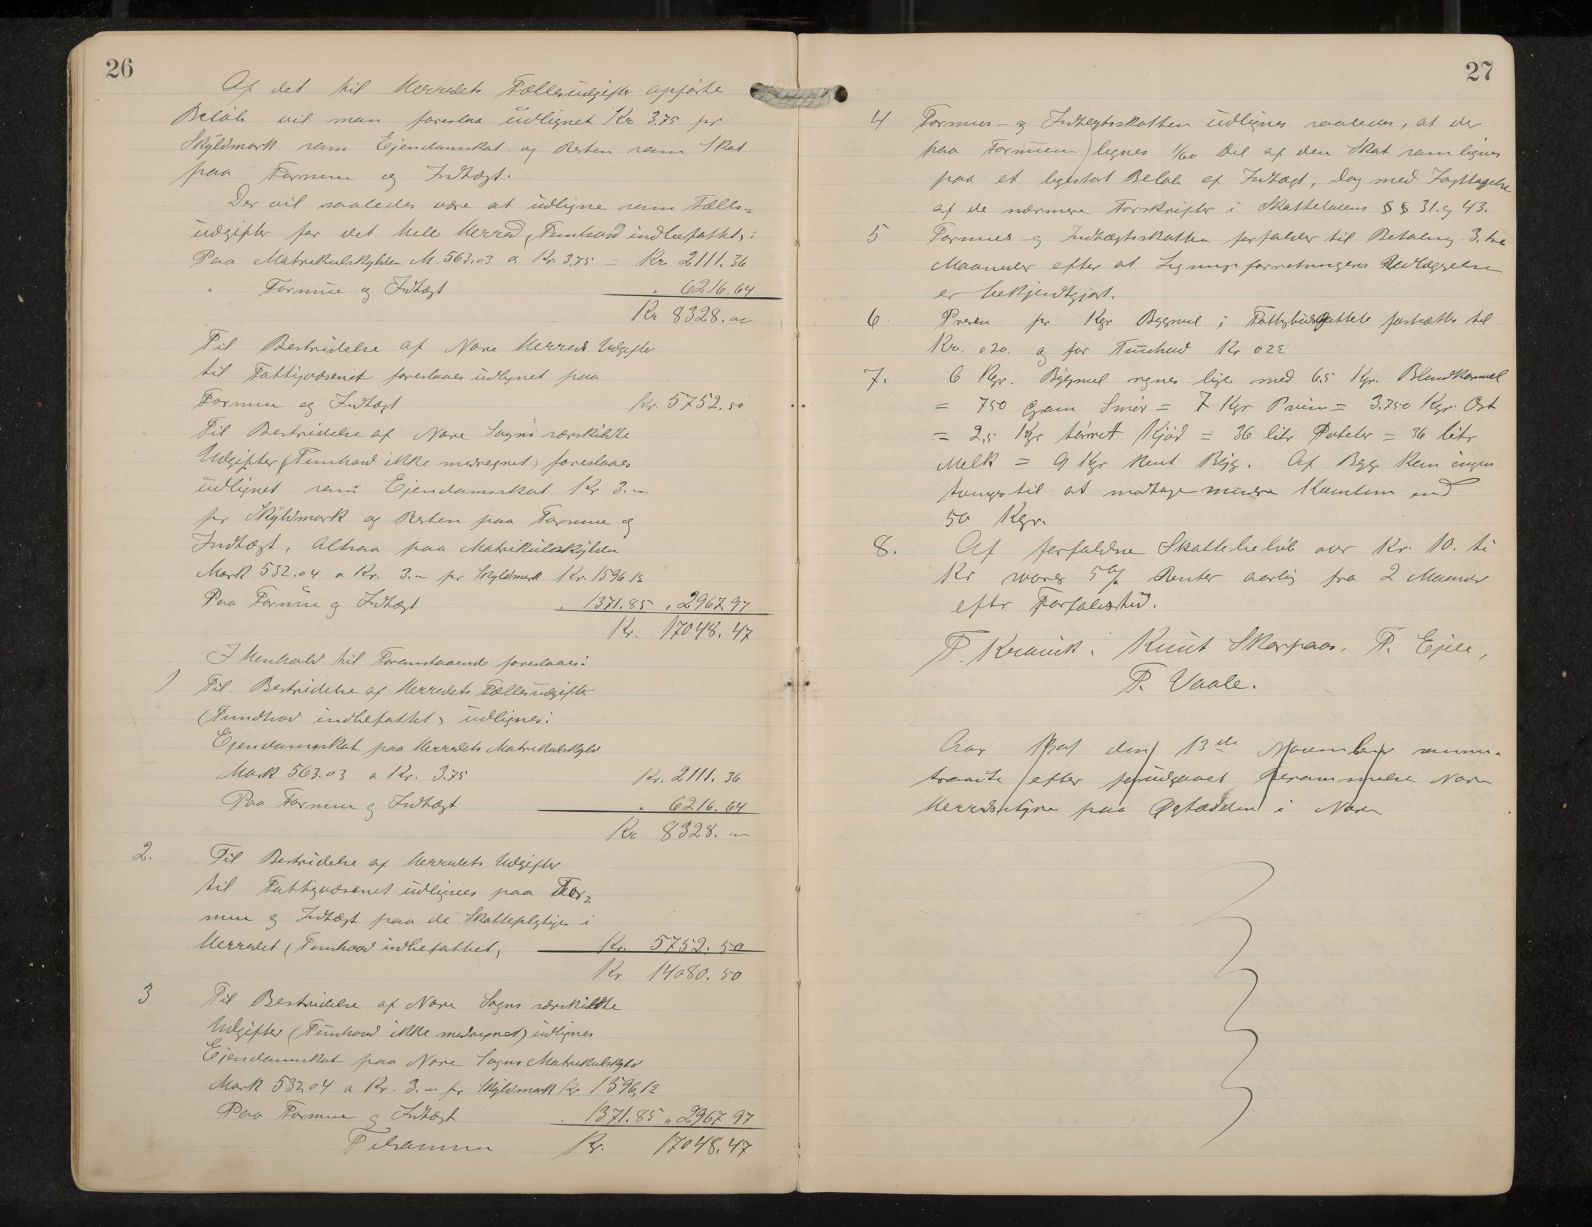 26
Af det til Herredets Fællesudgifter opførte
Beløb vil man foreslaa udlignet Kr 3.75 pr
Skyldmark som Ejendomsskat og Resten som Skat
paa Formue og Indtægt.
Der vil saaledes være at udligne som Fælles=
udgifter for det hele Herred, Tunhovd indbefattet,:
Paa Matrikulskylden M. 563.03 a Kr. 3.75 = Kr. 2111.36
" Formue og Indtægt " 6216.64
Kr 8328.00
Til Bestridelse af Nore Herreds Udgifter
til Fattigvæsenet foreslaaes udlignet paa
Formue og Indtægt Kr. 5752.50
Til Bestridelse af Nore Sogns særskilte
Udgifter (Tunhovd ikke medregnet) foreslaaes
udlignet som Ejendomsskat Kr 3.00
pr Skyldmark og Resten paa Formue og
Indtægt, altsaa paa Matrikulskylden
Mark 532.04 a Kr. 3.00 pr Skyldmark Kr. 1596.12
Paa Formue og Indtægt " 1371.85 " 2967.97
Kr. 17048.47
I Henhold til Foranstaaende foreslaaes:
1 Til Bestridelse af Herredets Fællesudgifter
(Tundhovd indbefattet) udlignes:
Ejendomsskat paa Herredets Matrikulskyld
Mark 563.03 a Kr. 3.75 Kr. 2111.36
Paa Formue og Indtægt " 6216.64
Kr 8328.00
2. Til Bestridelse af Herredets Udgifter
til Fattigvæsenet udlignes paa For=
mue og Indtægt paa de Skattepligtige i
Herredet (Tunhovd indbefattet) Kr. 5752.50
Kr 14080.50
3 Til Bestridelse af Nore Sogns særskilte
Udgifter (Tunhovd ikke medregnet) udlignes
Ejendomsskat paa Nore Sogns Matrikulskyld
Mark 532.04 a Kr. 3.00 pr Skyldmark Kr. 1596,12
Paa Formue og Indtægt " 1371.85 " 2967.97
Tilsammen Kr. 17048.47
27
4 Formues- og Indtægtsskatten udlignes saaledes, at der
paa Formuen lignes 1/60 Del af den Skat som lignes
paa et ligestort Beløb af Indtægt, dog med Iagttagelse
af de nærmere Forskrifter i Skattelovens §§ 31. og 43.
5 Formues og Indtægtsskatten forfalder til Betaling 3. tre
Maaneder efter at Ligningsforretningens Udlæggelse
er bekjendtgjort.
6. Prisen pr Kgr Bygmel i fastsættes til
Kr. 0.20. og for Tunhovd Kr 0.22
7. 6 Kgr. Bygmel regnes lige med 6.5 Kgr. Blandkornmel
= 750 Gram Smør = 7 Kgr Prim = 3.750 Kgr. Ost
= 2,5 Kgr tørret Kjød = 36 liter Poteter = 36 liter
Melk = 9 Kgr rent Byg. Af Byg kan ingen
tvinges til at modtage mindre Kvantum end
50 Kgr.
8. Af forfaldne Skattebeløb over Kr. 10. ti
Kr svares 5 % Renter aarlig fra 2 Maaneder
efter Forfaldstid.
T. Kravik. Knut Skarpaas. T. Ejde,
T. Vaale.
Aar den 13de November sammen=
traadte efter forudgaaet Berammelse Nore
Herredsstyre paa i Nore